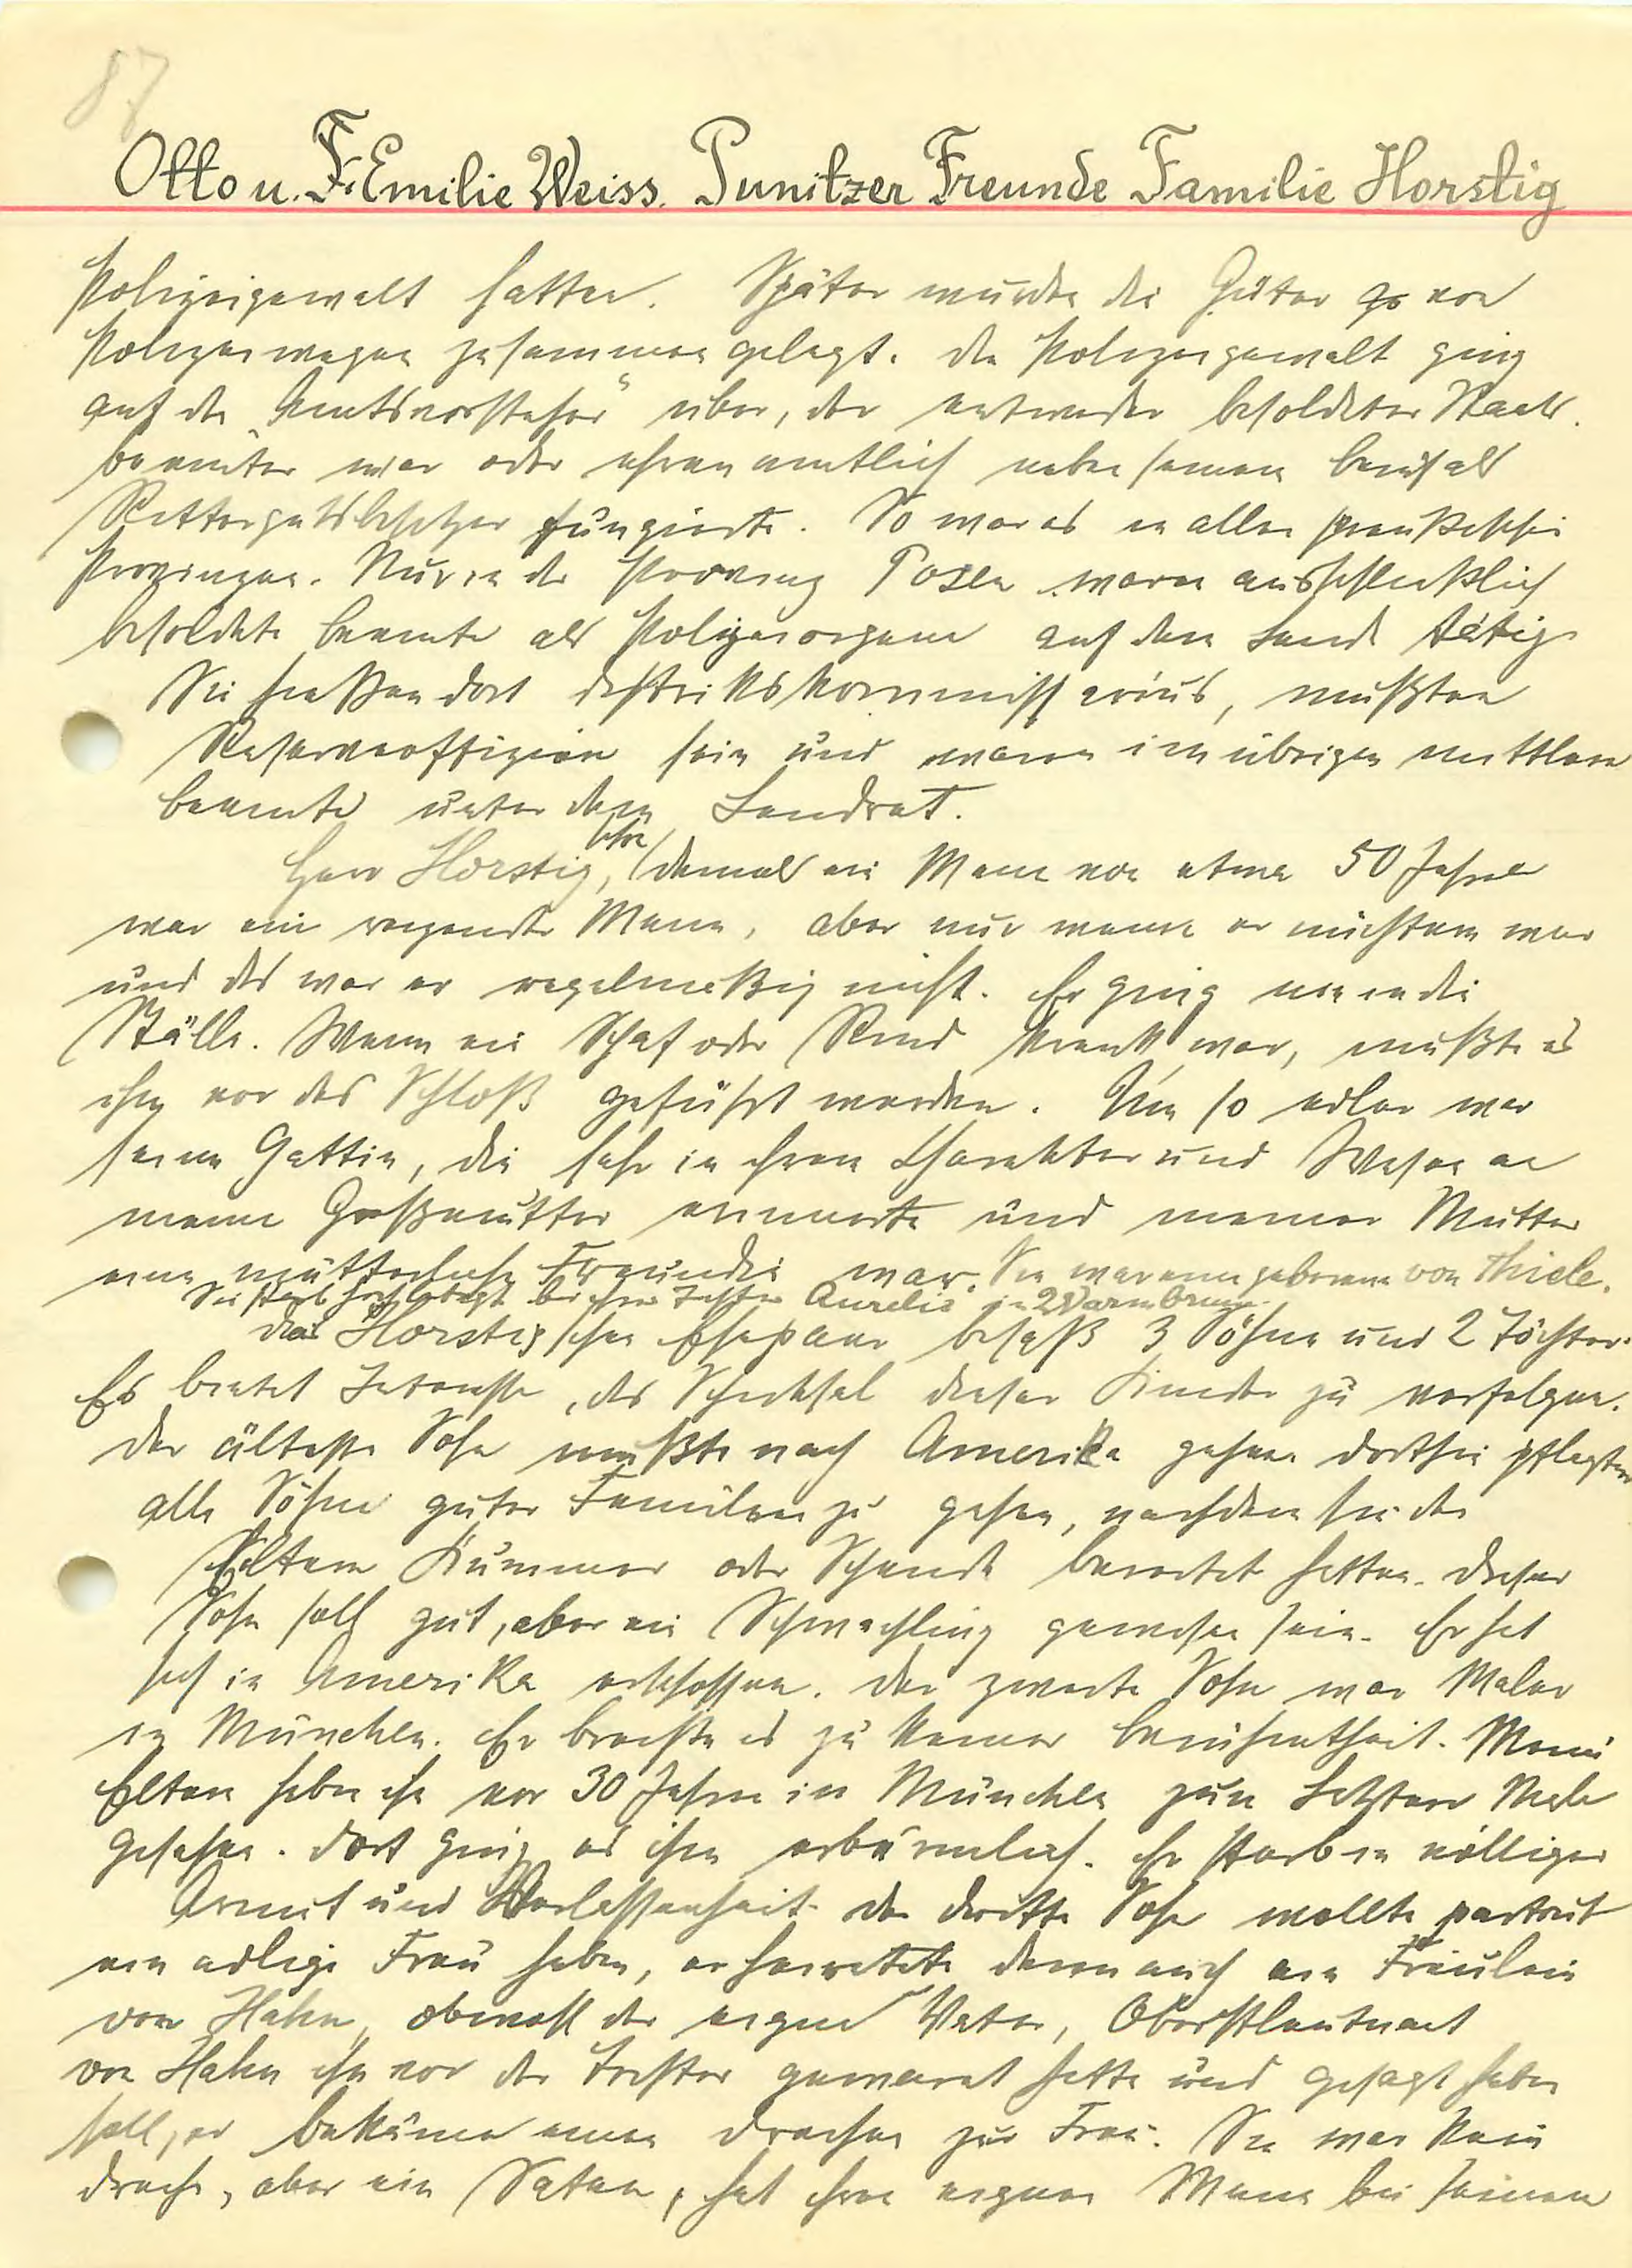 87
Otto u. Fr. Emilie Weiss. Punitzer Freunde Familie Horstig
Polizeigewalt hatten. Später wurden die Güter von
Polizeiwegen zusammen gelegt. Die Polizeigewalt ging
auf den „Amtsvorsteher“ über, der entweder besoldeter Staats-
beamter war oder ehrenamtlich neben seinem Beruf als
Rittergutsbesitzer fungierte. So war es in allen preußischen
Provinzen. Nur in der Provinz Posen waren ausschließlich
besoldete Beamte als Polizeiorgane auf dem Lande tätig.
Sie hießen dort Distriktskommissarius, mußten
Reserveoffizier sein und waren im übrigen mittlere
Beamte unter dem Landrat.
Herr Horstig, damals ein Mann von etwa 50 Jahren
war ein reizender Mann, aber nur wenn er nüchtern war
und das war er regelmäßig nicht. Er ging nie in die
Ställe. Wenn ein Schaf oder Rind krank war, mußte es
ihm vor das Schloß geführt werden. Um so edler war
seine Gattin, die sehr in ihrem Charakter und Wesen an
meine Großmutter erinnerte und meiner Mutter
eine mütterliche Freundin war. Sie war eine geborene von Thiele.
Sie starb hochbetagt bei ihrer Tochter Aurelie in Warmbrunn.
Das Horstigschen Ehepaar besaß 3 Söhne und 2 Töchter.
Es bietet Interesse, das Schicksal dieser Kinder zu verfolgen.
Der älteste Sohn mußte nach Amerika gehen dorthin pflegten
alle Söhne guter Familien zu gehen, nachdem sie den
Eltern Kummer oder Schande bereitet hatten. Dieser
Sohn soll gut, aber ein Schwächling gewesen sein. Er hat
sich in Amerika erschossen. Der zweite Sohn war Maler
in München. Er brachte es zu keiner Berühmtheit. Meine
Eltern haben ihn vor 30 Jahren in München zum Letzten Male
gesehen. Dort ging es ihm erbärmlich. Er starb in völliger
Armut und Verlassenheit. Der dritte Sohn wollte partout
eine adlige Frau haben, er heiratete denn auch ein Fräulein
von Hahn, obwohl der eigene Vater, Oberstleutnant
von Hahn ihn vor der Tochter gewarnt hatte und gesagt haben
soll, er bekäme einen Drachen zur Frau. Sie war kein
Drache, aber ein Satan, hat ihren eigenen Mann bei seinem